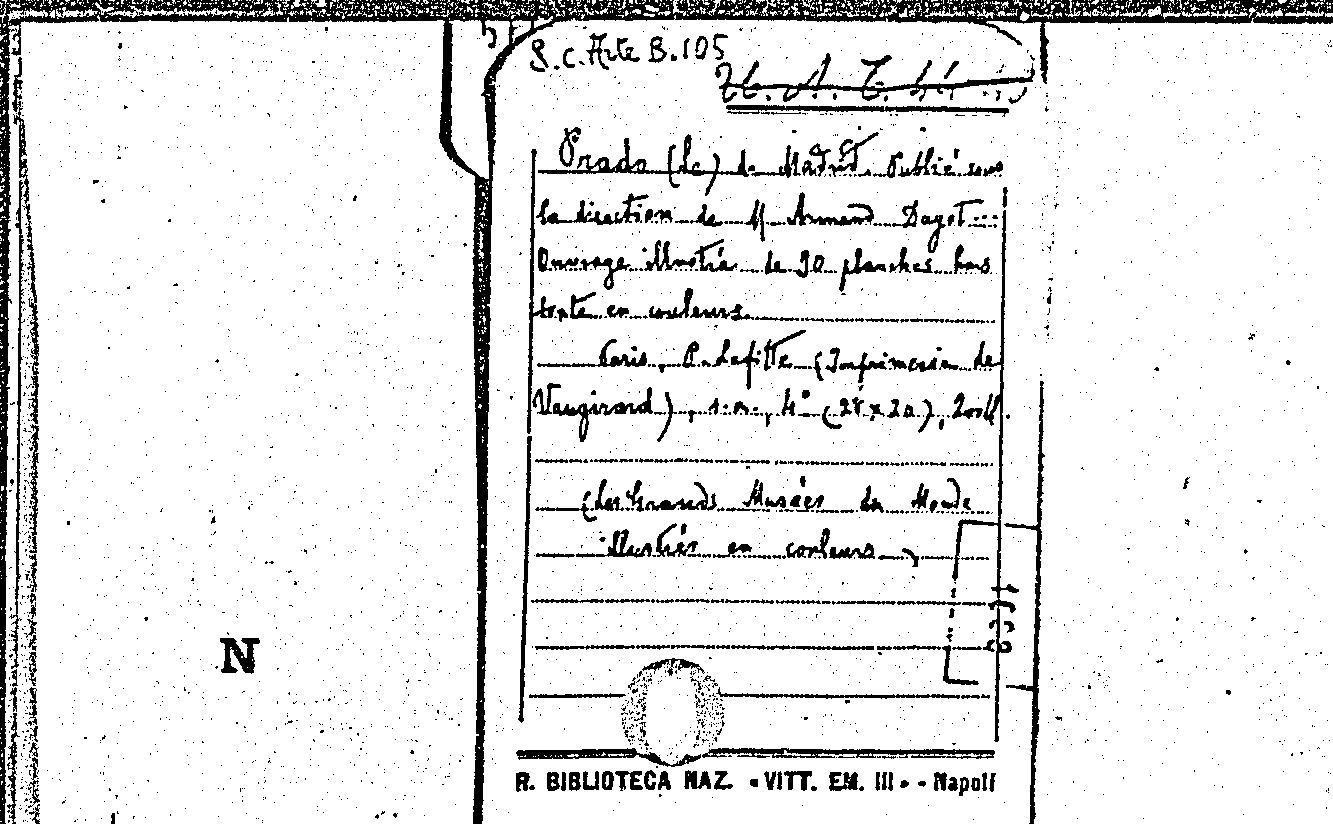 S.c. Arte B.105
Prado (Le) de Madrid. Publié sous
la direction de M Armand Dayot...
Ouvrage illustré de 90 planches hors
texte en couleurs.
Paris, P. Lafitte (Imprimerie de
Vaugirard), s.a., 4° (28 x 20), 2 voll.
(Les Grands Musées du Monde
illustrés en couleurs.)
N
R. BIBLIOTECA NAZ. «VITT. EM. III» - Napoli